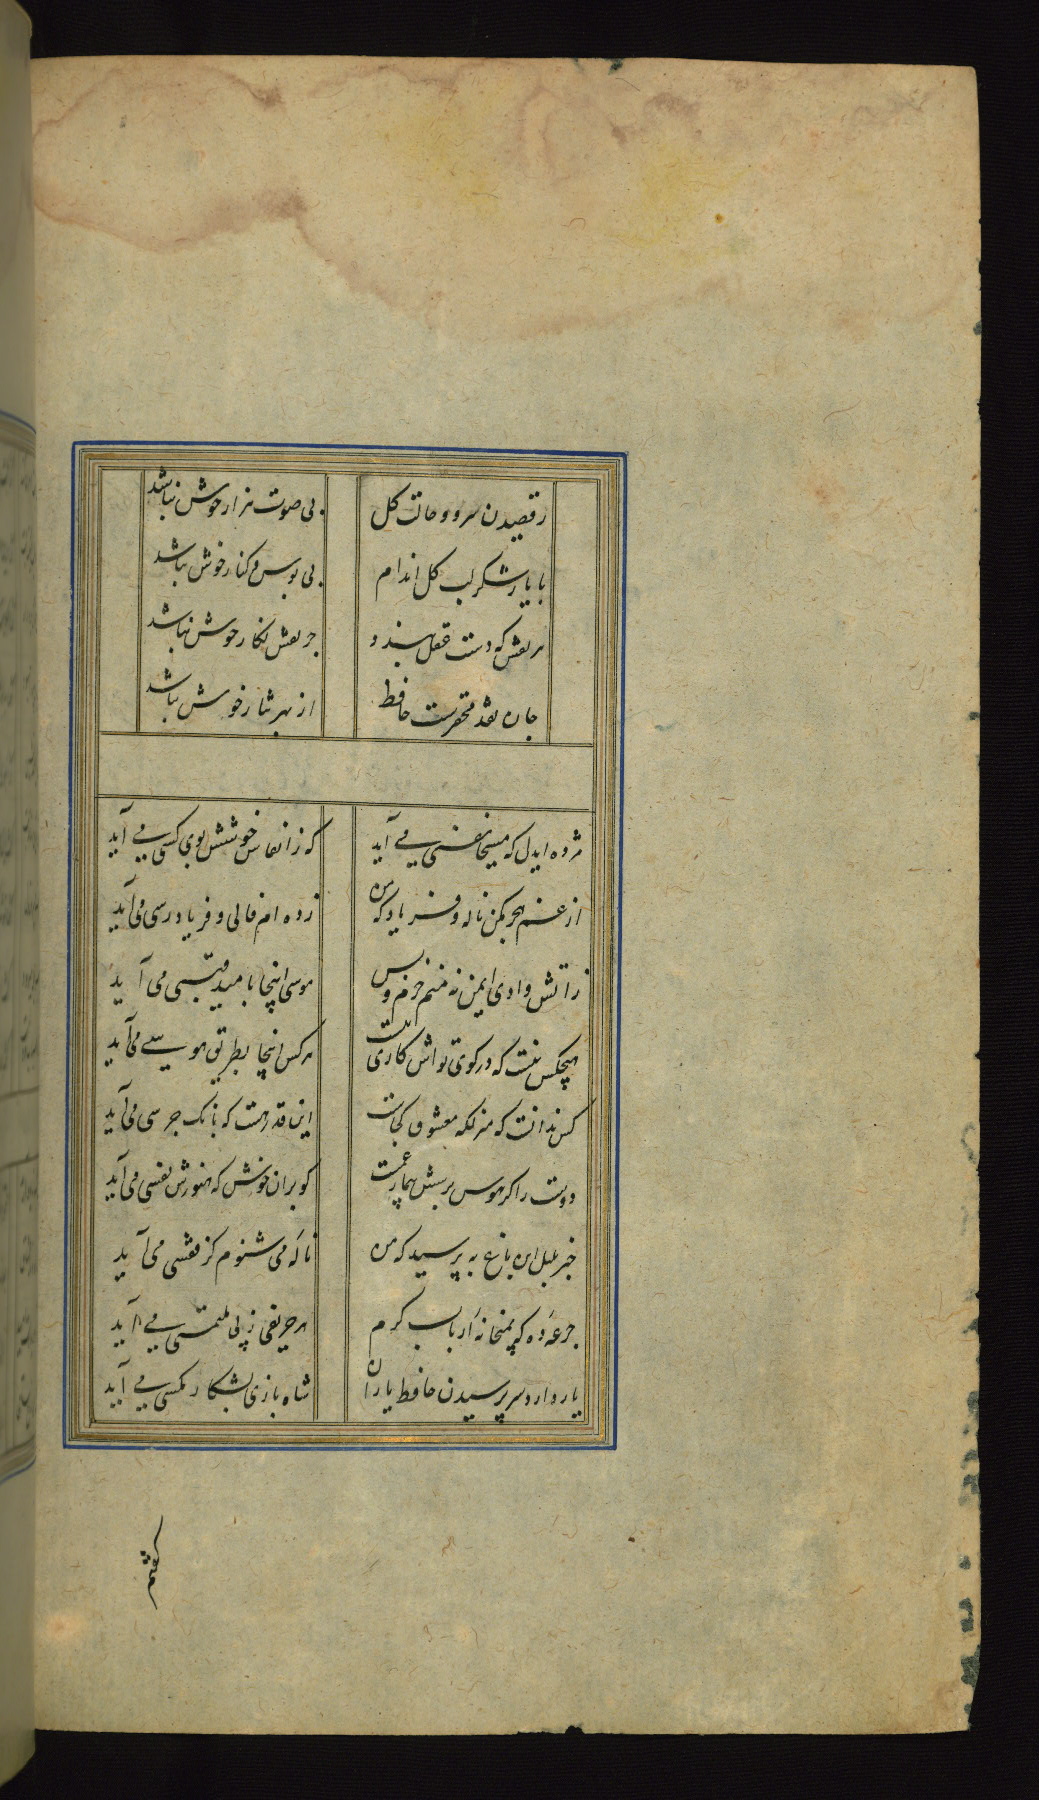 رقصیدن سرو و حالت گل بی صوت هزار خوش نباشد
با یار شکر لب گل اندام بی بوس و کنار خوش نباشد
هر نقش که دست عقل بندد جز نقش نگار خوش نباشد
جان نقد محقرست حافظ از بهر نثار خوش نباشد
مژده ایدل که مسیحا نفسی می آید که ز انفاس خوشش بوی کسی می آید
از غم هجر مکن ناله و فریاد که من زده ام فالی و فریادرسی می آید
زاتش وادی ایمن نه منم خرم و بس موسی اینجا بامید قبسی می آید
هیچکس نیست که در کوی تواش کاری نیست هر کس اینجا بطریق هوسی می آید
کس ندانست که منزلگه معشوق کجاست این قدر هست که بانک جرسی می آید
دوست را گر هوس پرسش بیمار غمست گو بران خوش که هنوزش نفسی می آید
خبر بلبل این باغ به پرسید که من ناله می شنوم کز قفسی می آید
جرعه ده که بمیخانه ارباب کرم هر حریفی ز پی ملتمسی می آید
یار دارد سر پرسیدن حافظ یاران شاه بازی بشکار مکسی می آید
گفتم